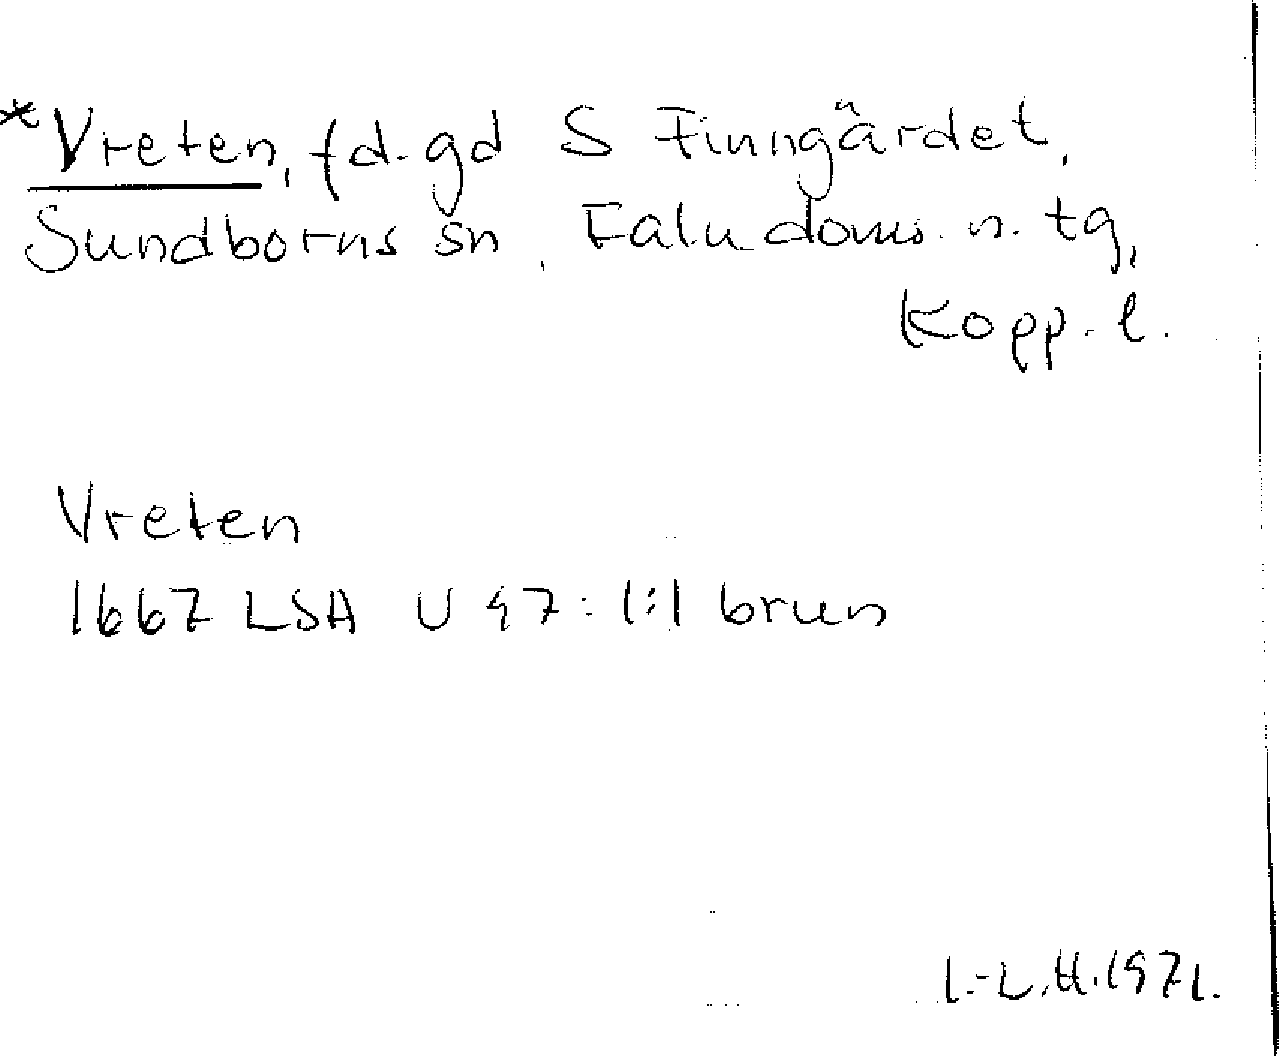 *Vreten, f.d. gd S Finngärdet,
Sundborns sn, Falu doms. n. tg,
Kopp. l.
Vreten
1667 LSA U 47: 1:1 brun
L.-L.H. 1971.